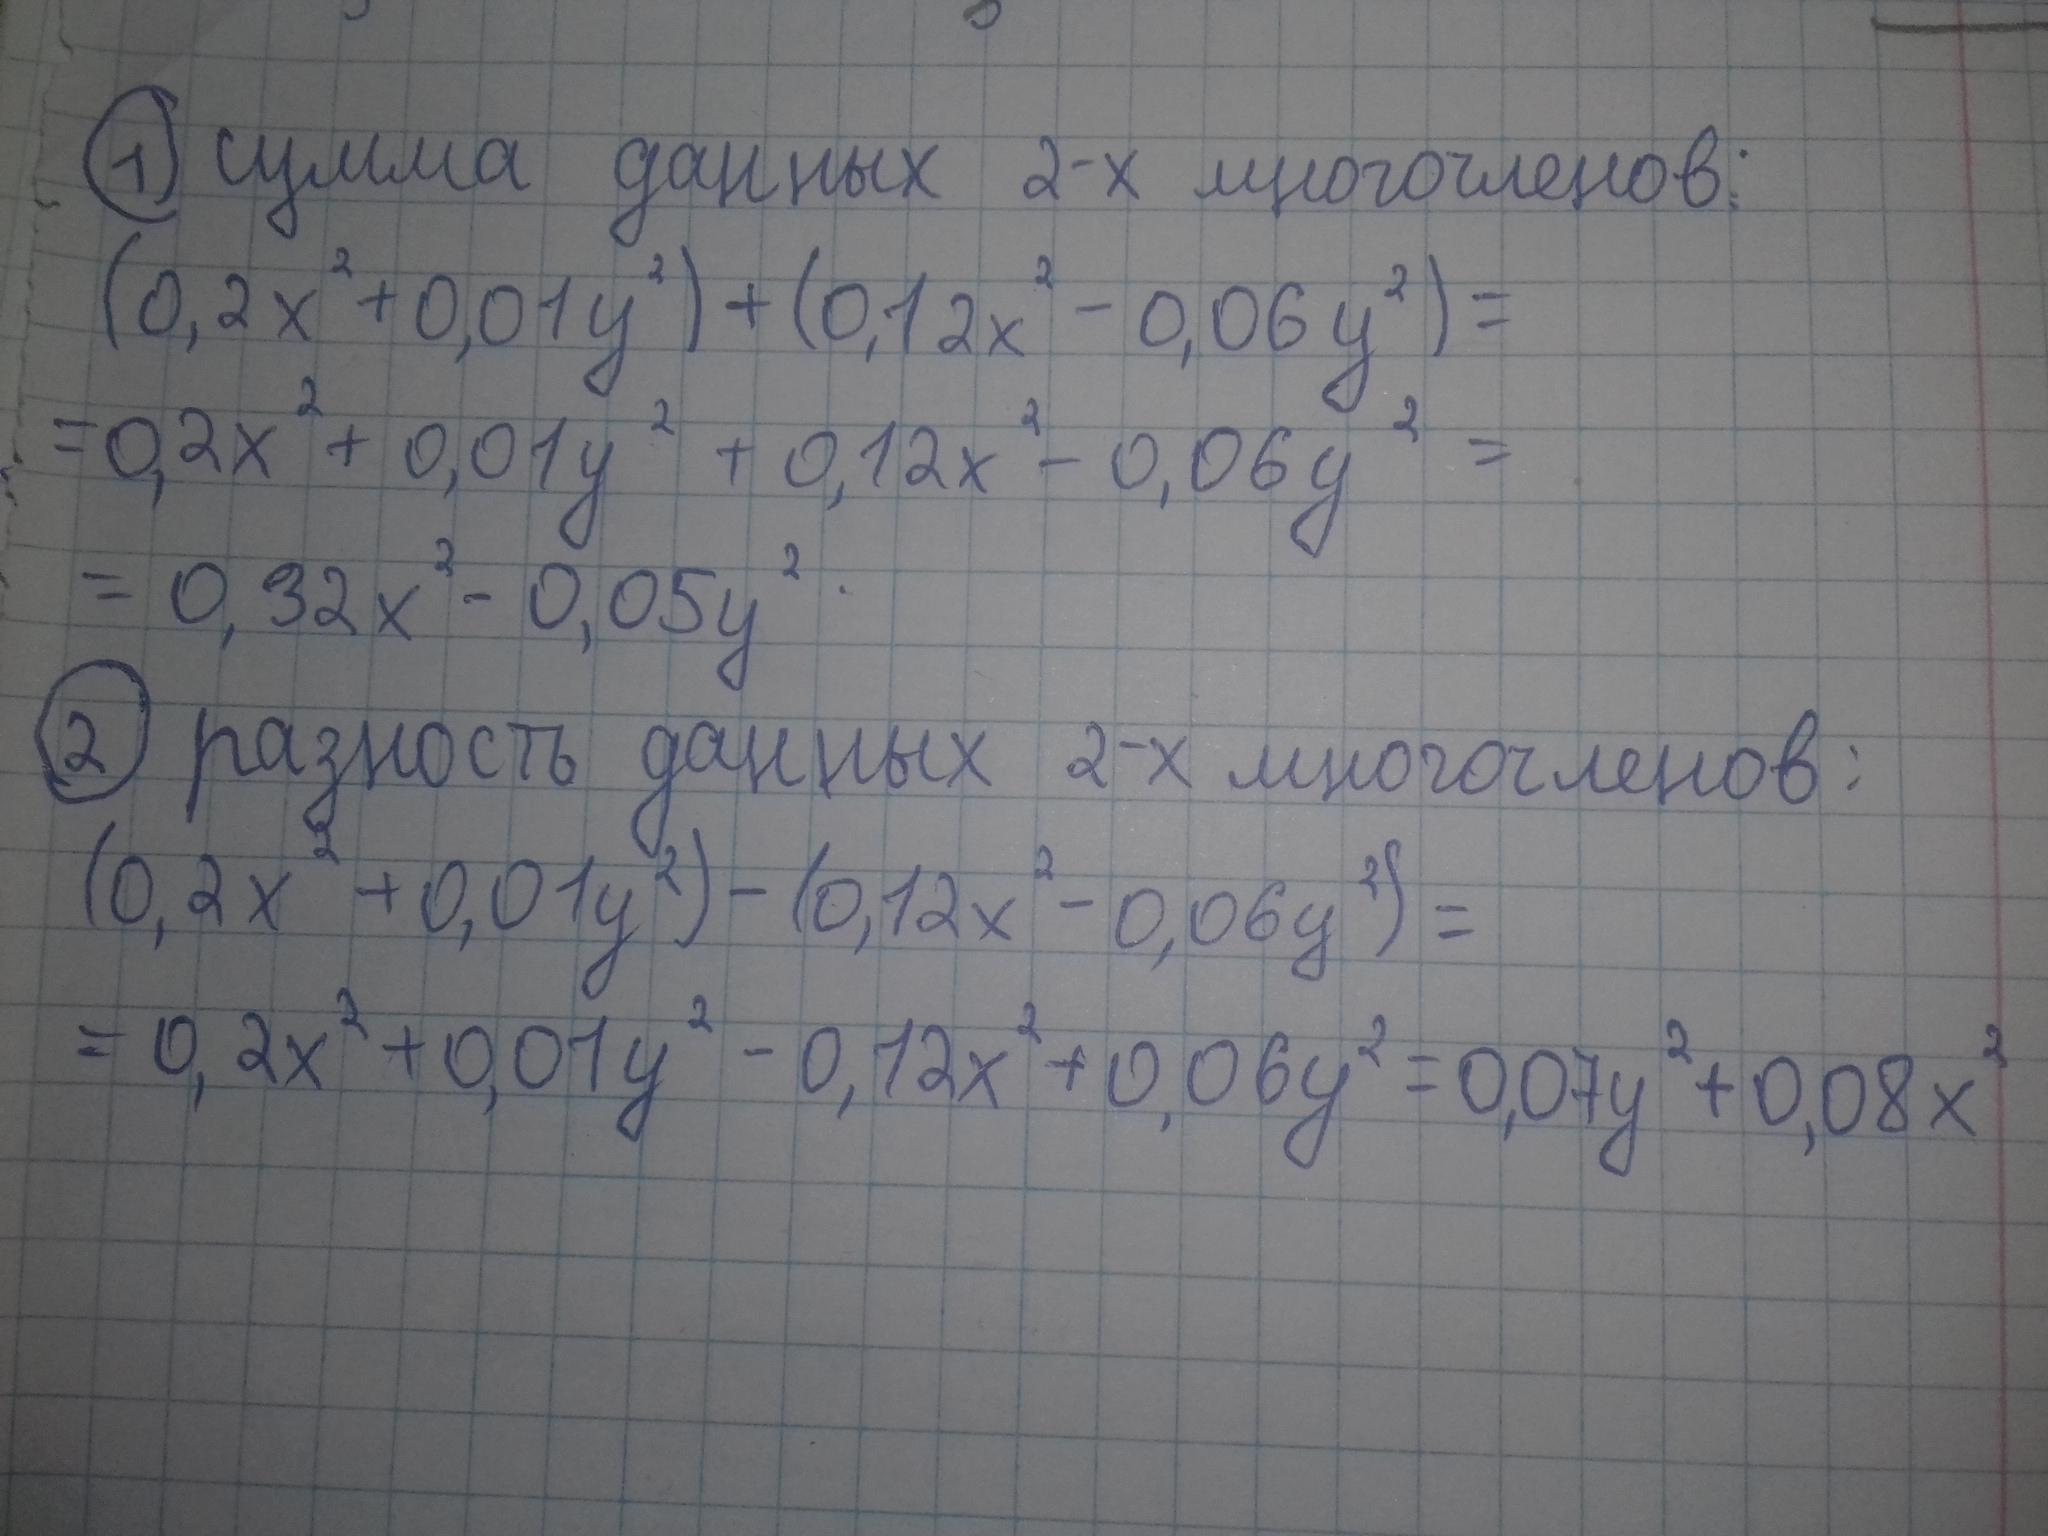 1 сумма данных 2-х многочленов:
(0,2x²+0,01y²)+(0,12x²-0,06y²)=
=0,2x²+0,01y²+0,12x²-0,06y²=
=0,32x²-0,05y².
2 разность данных 2-х многочленов:
(0,2x²+0,01y²)-(0,12x²-0,06y²)=
=0,2x²+0,01y²-0,12x²+0,06y²=0,07y²+0,08x²